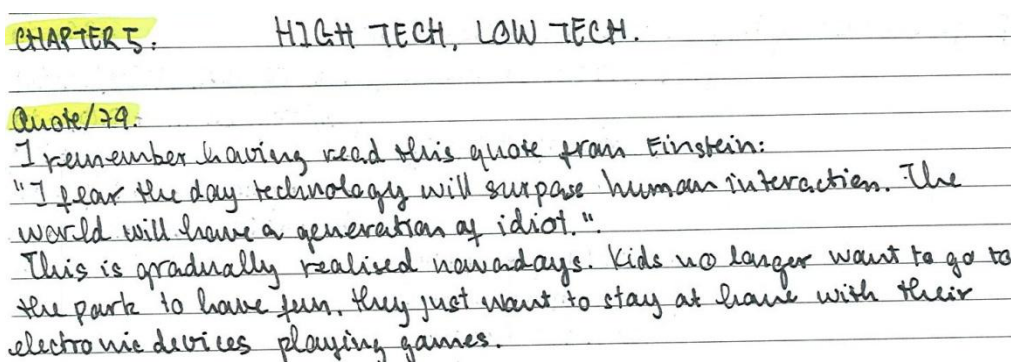 CHAPTER 5: HIGH TECH, LOW TECH.
Quote/79.
I remember having read this quote from Einstein:
"I fear the day technology will surpass human interaction. The
world will have a generation of idiot.".
This is gradually realised nowadays. Kids no longer want to go to
the park to have fun, they just want to stay at home with their
electronic devices playing games.